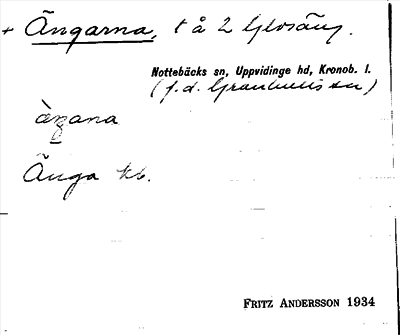 + Ängarna, t å 2 Glosäng.
Nottebäcks sn, Uppvidinge hd, Kronob. l.
(f.d. Granhults sn)
àŋana
Änga kb.
FRITZ ANDERSSON 1934